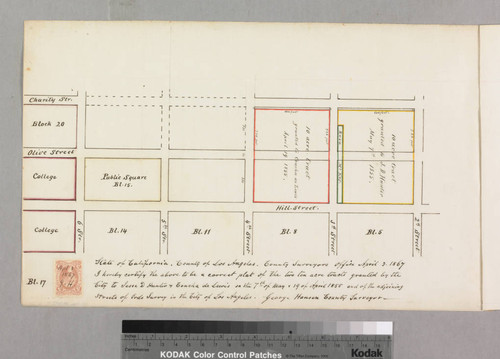 Charity Str.
Block 20
10 acre tract
granted to
April 19 1855.
10 acre tract
granted to J. D. Hunter
May 7th 1855.
Olive Street
College
Public Square
Bl. 15.
Hill Street.
College
6 Str.
Bl. 14
5th Str.
Bl. 11
4th Street
Bl. 8
3d Street
Bl. 6
2d Street
Bl. 17
State of California, County of Los Angeles. County Surveyors Office April 3. 1867
I hereby certify the above to be a correct plat of the two ten acre tracts granted by the
City to Jesse D. Hunter & on the 7th of May & 19 of April 1855 and of the adjoining
Streets of Ords Survey in the City of Los Angeles. George Hansen County Surveyor
KODAK Color Control Patches
Kodak